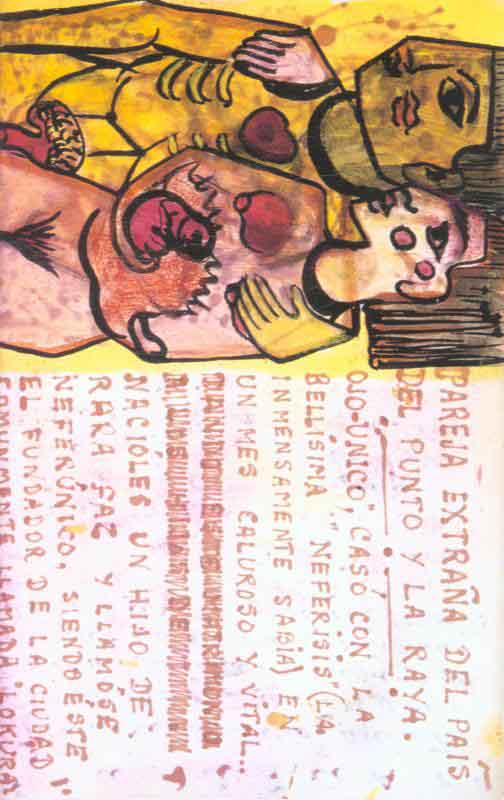 PAREJA EXTRAÑA DEL PAIS
DEL PUNTO Y LA RAYA.
OJO-UNICO", CASÓ CON LA
BELLÍSIMA "NEFERISIS" (LA
INMENSAMENTE SABIA) EN
UN MES CALUROSO Y VITAL...
NACIÓLES UN HIJO DE
RARA FAZ Y LLAMÓSE
NEFERÚNICO, SIENDO ÉSTE
EL FUNDADOR DE LA CIUDAD
COMUNMENTE LLAMADA "LOKURA"